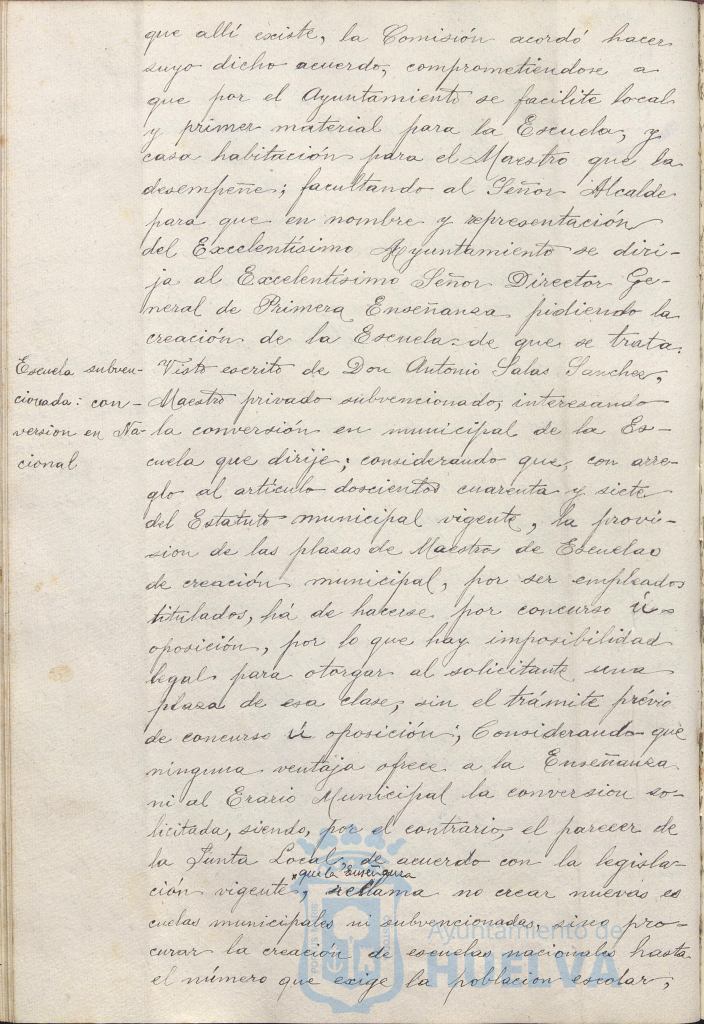 que allí existe, la Comisión acordó hacer
suyo dicho acuerdo, comprometiendose a
que por el Ayuntamiento se facilite local
y primer material para la Escuela, y
casa habitación para el Maestro que la
desempeñe; facultando al Señor Alcalde
para que en nombre y representación
del Excelentísimo Ayuntamiento se diri-
ja al Excelentísimo Señor Director Ge-
neral de Primera Enseñanza pidiendo la
creación de la Escuela de que se trata.
Escuela subven-
cionada: con-
version en Na-
cional
Visto escrito de Don Antonio Salas Sanchez,
Maestro privado subvencionado, interesando
la conversión en municipal de la Es-
cuela que dirije; considerando que, con arre-
glo al artículo doscientos cuarenta y siete
del Estatuto municipal vigente, la provi-
sion de las plazas de Maestros de Escuelas
de creación municipal, por ser empleados
titulados, há de hacerse por concurso ú
oposición, por lo que hay imposibilidad
legal para otorgar al solicitante una
plaza de esa clase, sin el trámite prévio
de concurso ú oposición; Considerando que
ninguna ventaja ofrece a la Enseñanza
ni al Erario Municipal la conversion so-
licitada, siendo, por el contrario, el parecer de
la Junta Local, de acuerdo con la legisla-
"que la Enseñanza
ción vigente, reclama no crear nuevas es
cuelas municipales ni subvencionadas, sino pro-
curar la creación de escuelas nacionales hasta
el número que exige la poblacion escolar,
Ayuntamiento de
HUELVA